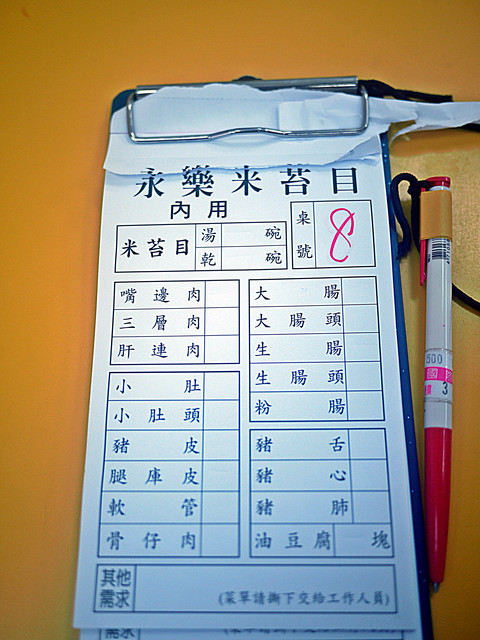 永樂米苔目
內用
米苔目 湯 碗
乾 碗
桌號 8
嘴邊肉
三層肉
肝連肉
小肚
小肚頭
豬皮
腿庫皮
軟管
骨仔肉
大腸
大腸頭
生腸
生腸頭
粉腸
豬舌
豬心
豬肺
油豆腐 塊
其他
需求
(菜單請撕下交給工作人員)
500
3